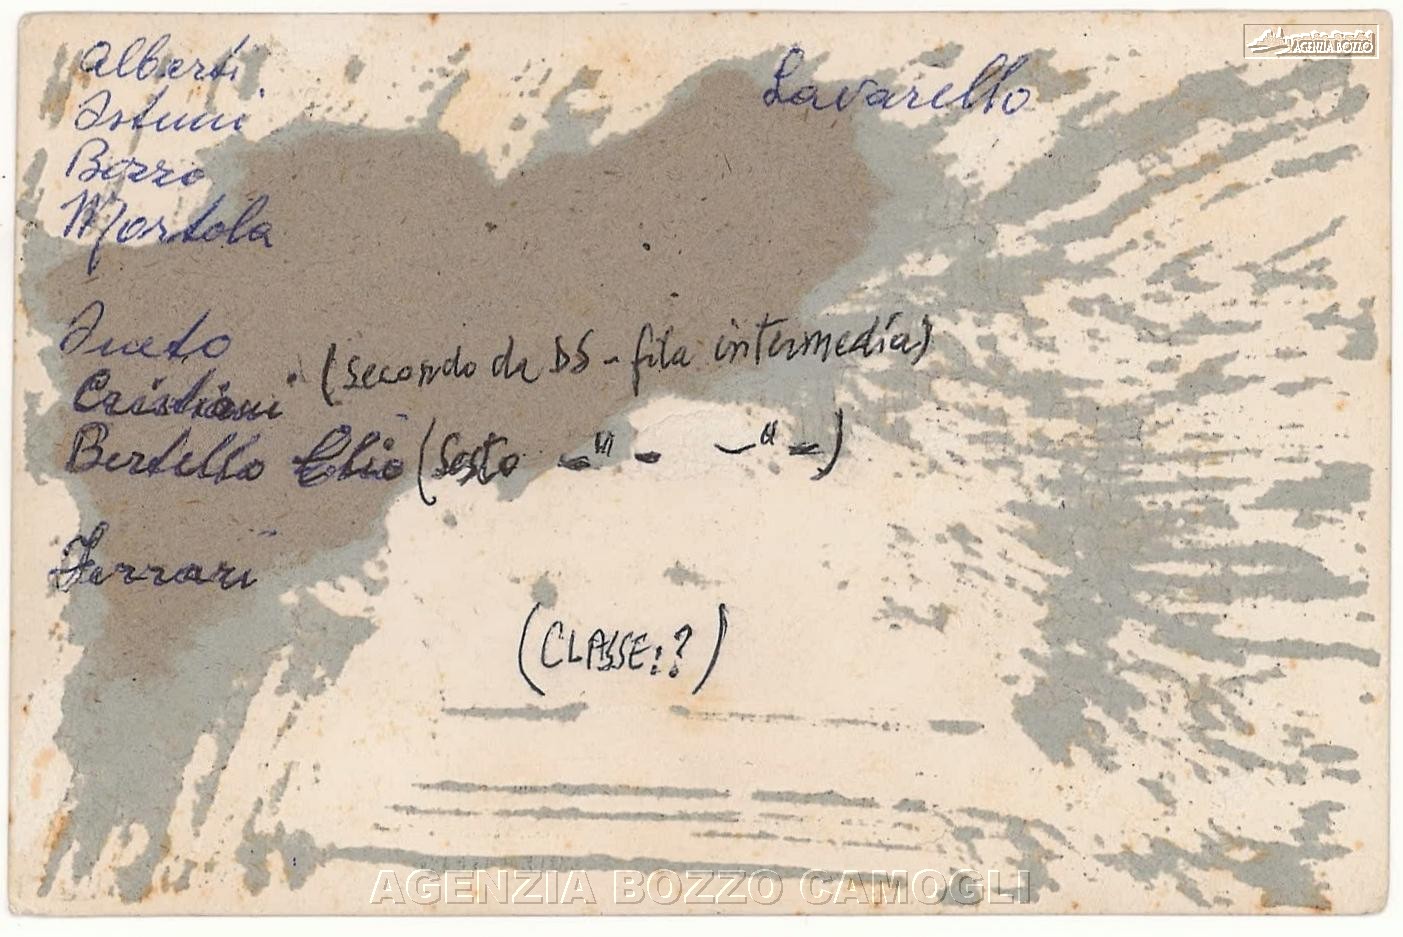 Alberti
Lavarello
Astuni
Bozzo
Mortola
(secondo da DS - fila intermedia)
Cristiani
Bertello Elio (Sesto - " - - " -)
Ferrari
(CLASSE:?)
AGENZIA BOZZO
AGENZIA BOZZO CAMOGLI